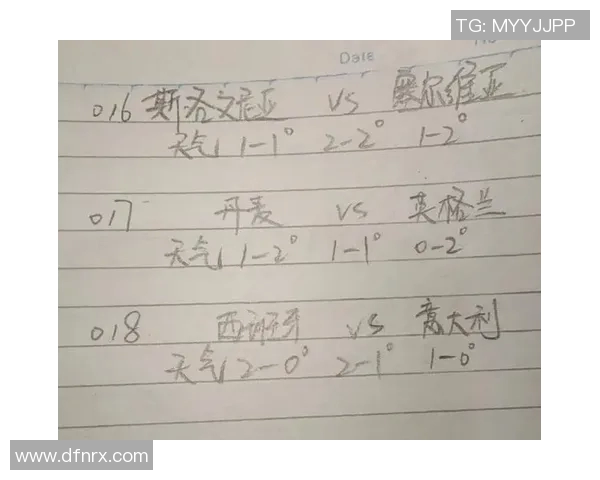 TG: MYYJJPP
Date
016 斯洛文尼亚 VS 塞尔维亚
天气 1-1° 2-2° 1-2°
017 丹麦 VS 英格兰
天气 1-2° 1-1° 0-2°
018 西班牙 VS 意大利
天气 2-0° 2-1° 1-0°
www.dfnrx.com